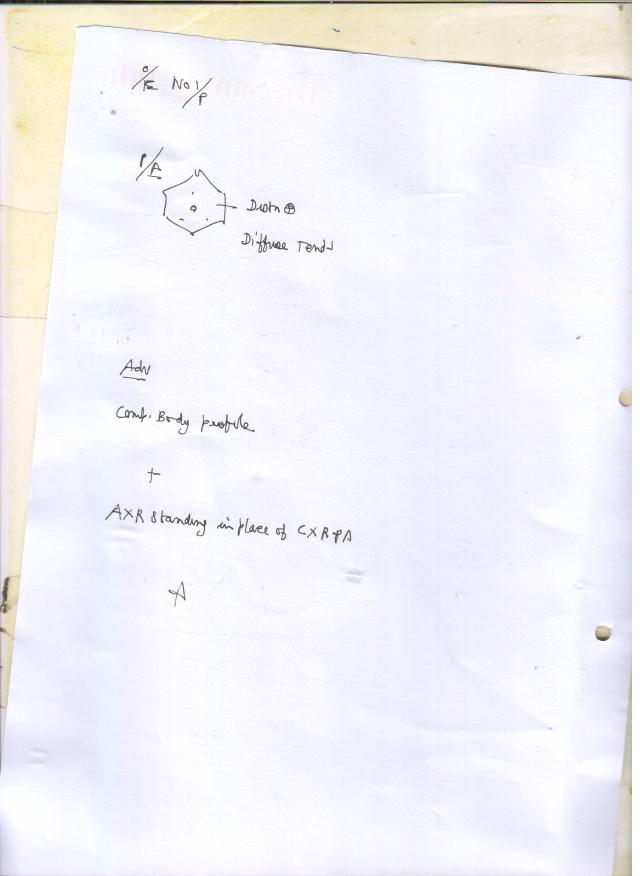 O/E No I/P
P/A
Distn ⊕
Diffuse Tend
Adv
Comp. Body profile
+
AXR Standing in place of CXR-PA